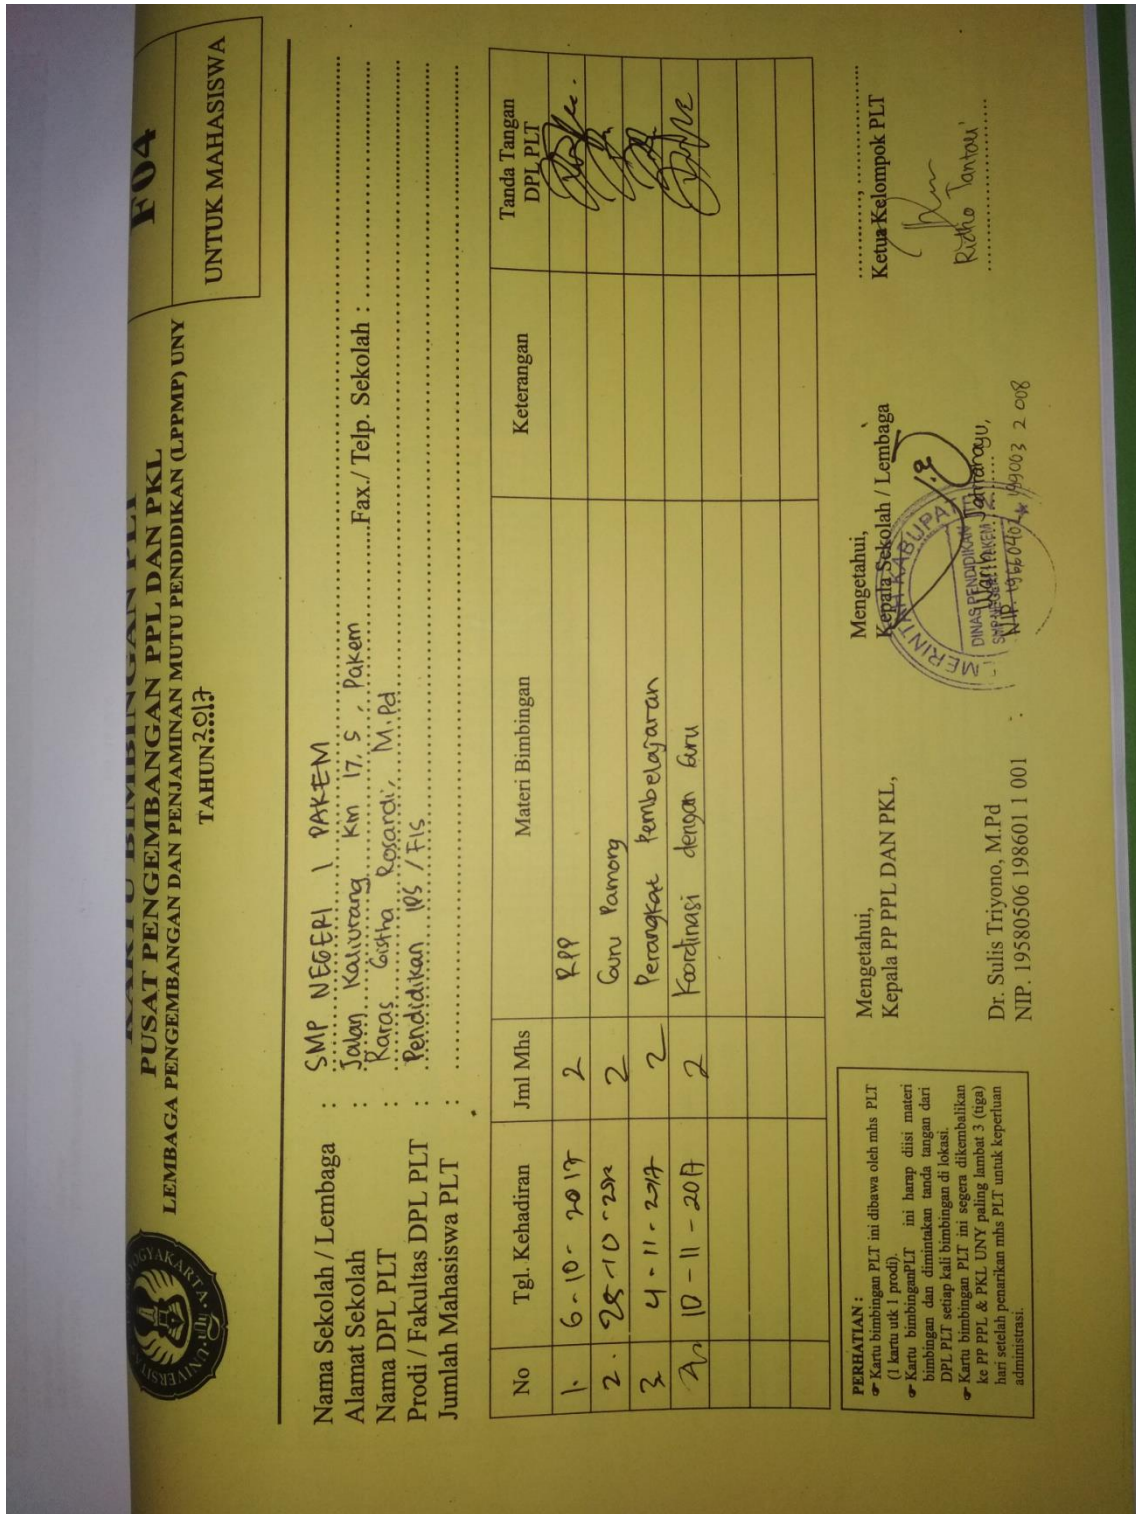 KARTU BIMBINGAN PLT
PUSAT PENGEMBANGAN PPL DAN PKL
LEMBAGA PENGEMBANGAN DAN PENJAMINAN MUTU PENDIDIKAN (LPPMP) UNY
TAHUN 2017
F04
UNTUK MAHASISWA
Nama Sekolah / Lembaga : SMP NEGERI 1 PAKEM
Alamat Sekolah : Jalan Kaliurang Km 17,5, Pakem Fax./ Telp. Sekolah :
Nama DPL PLT : Raras Gistha Rosardi, M.Pd
Prodi / Fakultas DPL PLT : Pendidikan IPS / FIS
Jumlah Mahasiswa PLT :
No Tgl. Kehadiran Jml Mhs Materi Bimbingan Keterangan Tanda Tangan DPL PLT
1. 6-10-2017 2 RPP
2. 25-10-2017 2 Guru Pamong
3. 4-11-2017 2 Perangkat Pembelajaran
4. 10-11-2017 2 Koordinasi dengan Guru
PERHATIAN :
☞ Kartu bimbingan PLT ini dibawa oleh mhs PLT
(1 kartu utk 1 prodi).
☞ Kartu bimbinganPLT ini harap diisi materi
bimbingan dan dimintakan tanda tangan dari
DPL PLT setiap kali bimbingan di lokasi.
☞ Kartu bimbingan PLT ini segera dikembalikan
ke PP PPL & PKL UNY paling lambat 3 (tiga)
hari setelah penarikan mhs PLT untuk keperluan
administrasi.
Mengetahui,
Kepala PP PPL DAN PKL,
Dr. Sulis Triyono, M.Pd
NIP. 19580506 198601 1 001
Mengetahui,
Kepala Sekolah / Lembaga
MERINTAH KABUPAT
DINAS PENDIDIKAN
SMP NEGERI 1 PAKEM
Warih Jatirahayu,
NIP. 19660402 199003 2 008
Ketua Kelompok PLT
Ridho Tantowi